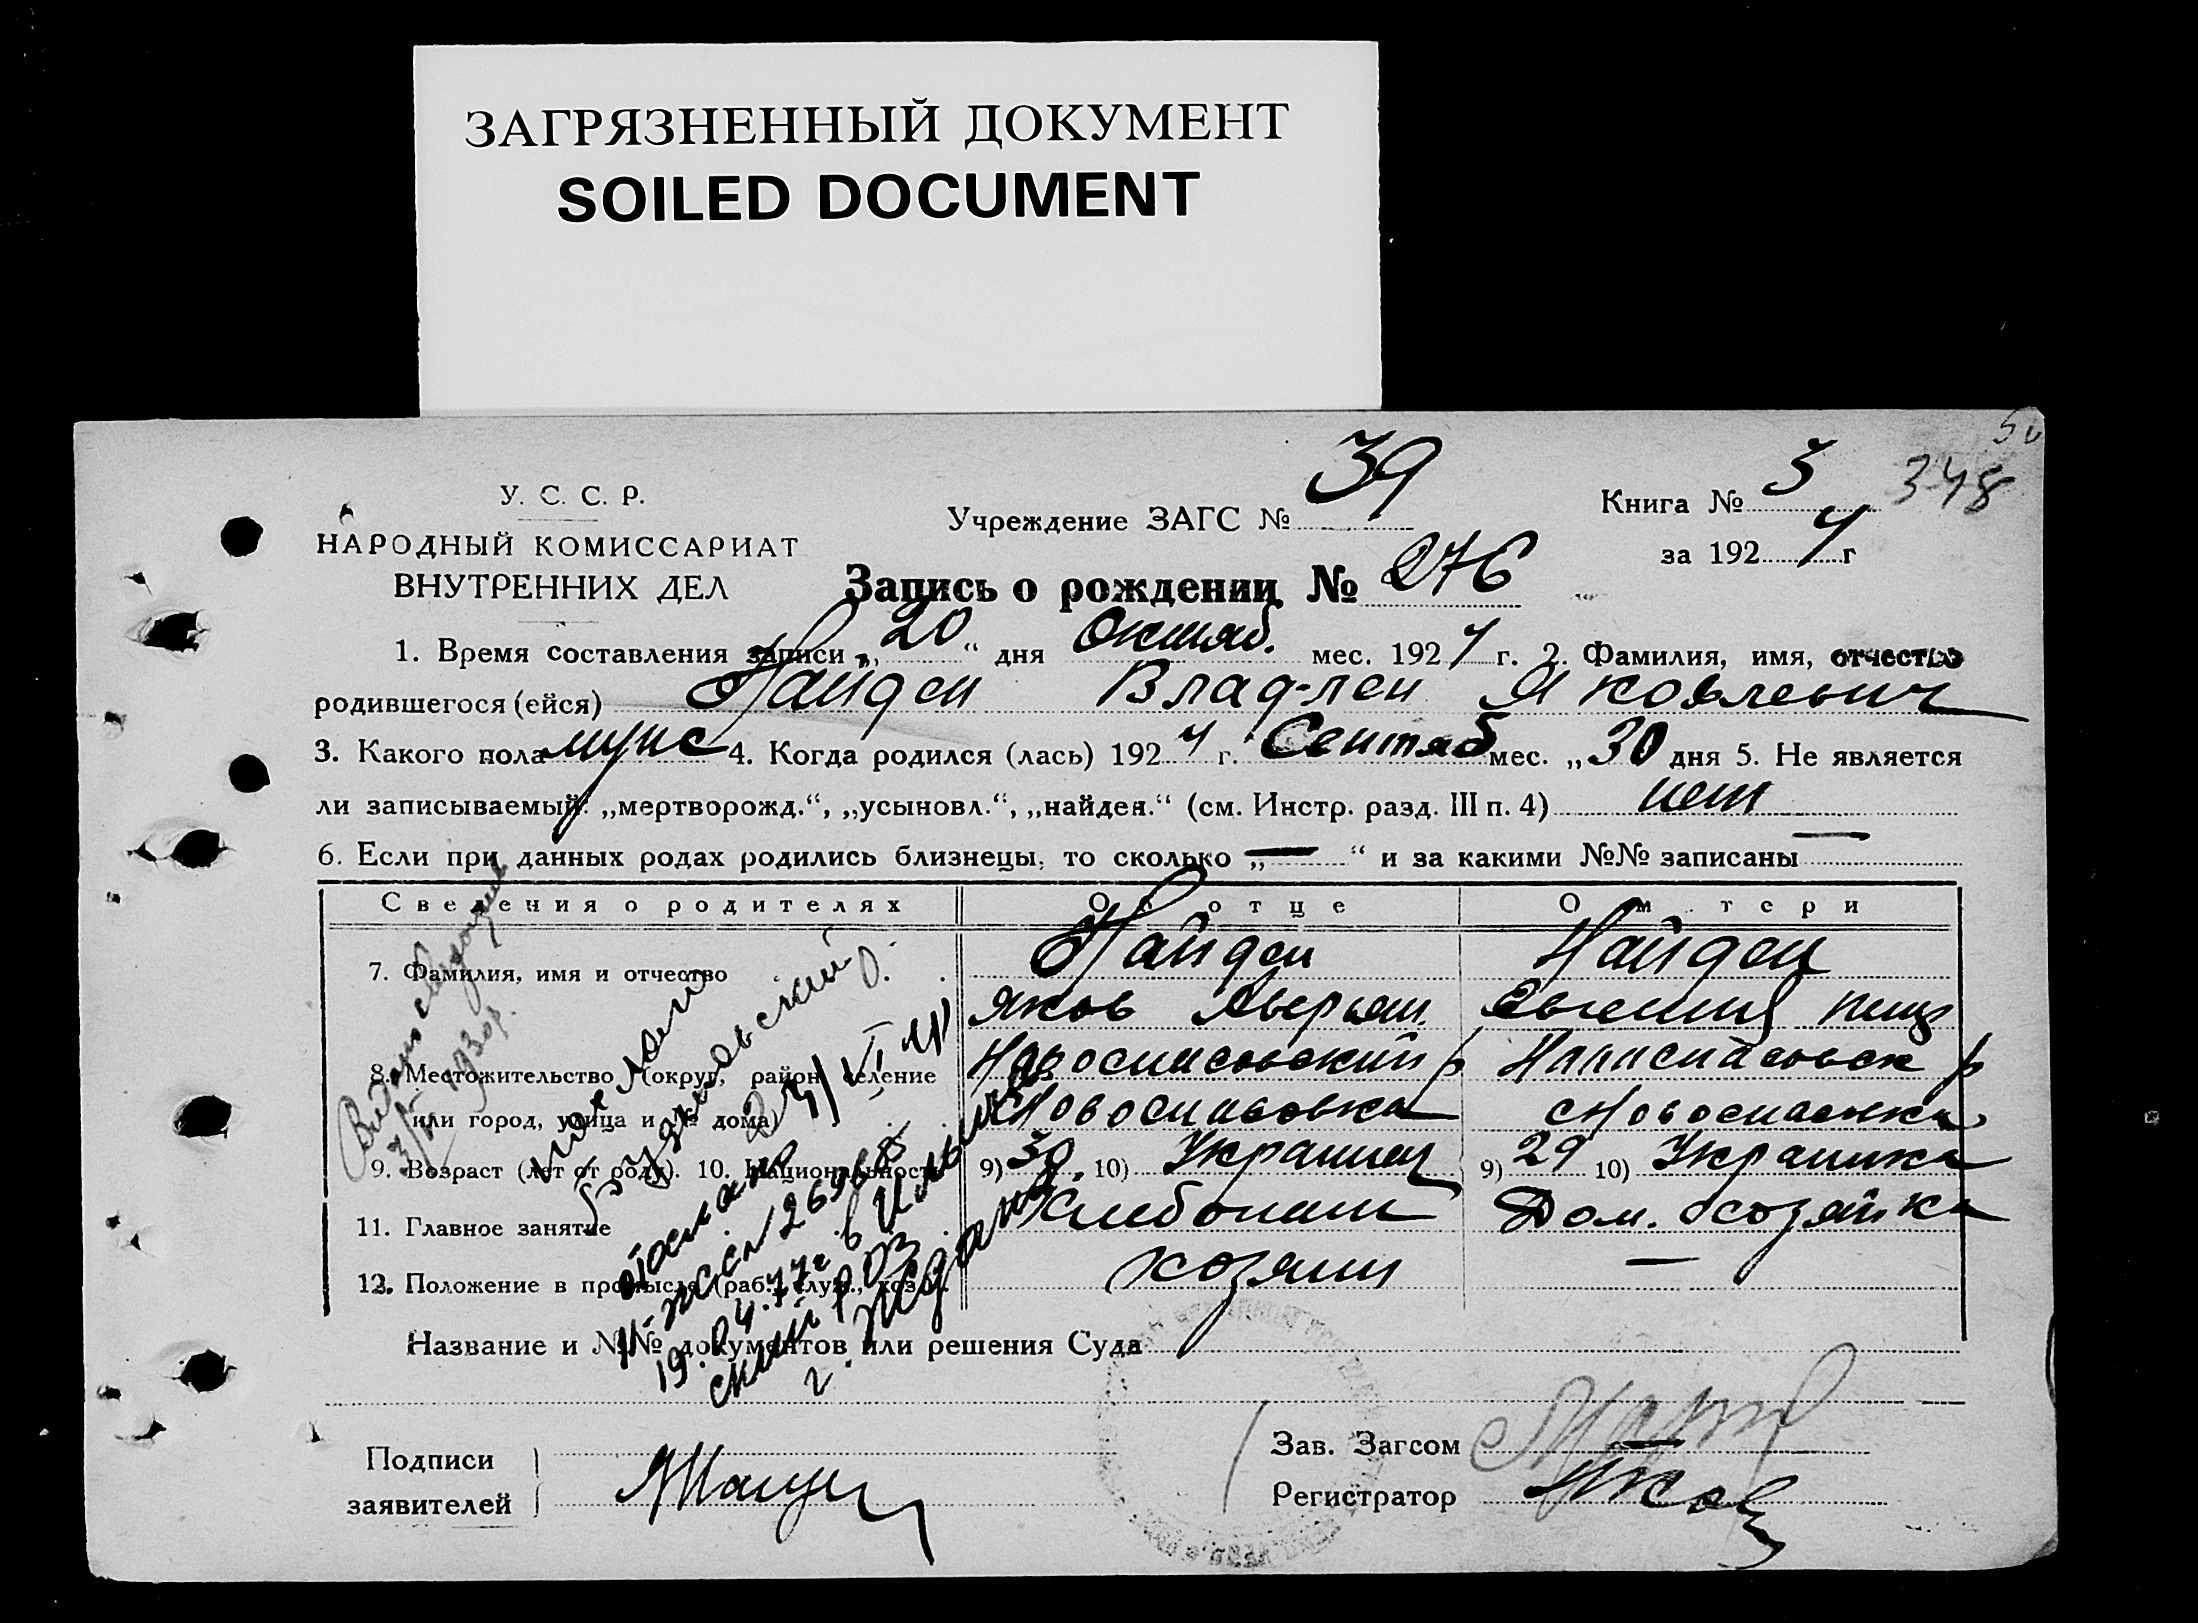 ЗАГРЯЗНЕННЫЙ ДОКУМЕНТ
SOILED DOCUMENT
348
У. С. С. Р.
НАРОДНЫЙ КОМИССАРИАТ
ВНУТРЕННИХ ДЕЛ
Учреждение ЗАГС № 39
Книга № 3
за 1924 г
Запись о рождении № 276
1. Время составления записи „20“ дня Октяб. мес. 1924 г. 2. Фамилия, имя, отчество
родившегося (ейся) Найден Влад-лен Яковлевич
3. Какого пола муж 4. Когда родился (лась) 1924 г. Сентяб мес. „30 дня 5. Не является
ли записываемый: „мертворожд.“, „усыновл.“, „найден.“ (см. Инстр. разд. III п. 4) нет
6. Если при данных родах родились близнецы, то сколько „—“ и за какими №№ записаны —
Сведения о родителях
Об отце
О матери
7. Фамилия, имя и отчество
Найден
Яков Аверьян.
Найден
Евгения
8. Местожительство (округ, район, селение
или город, улица и № дома)
Новоспасовский р
Новоспасовка
Новоспасовск р
с Новоспасовка
9. Возраст (лет от роду). 10. Национальность
9) 30 10) Украинец
9) 29 10) Украинка
11. Главное занятие
Хлебопаш
Дом. хозяйка
12. Положение в промысле (раб., служ., хоз.)
хозяин
—
Название и №№ документов или решения Суда
Подписи
заявителей
Зав. Загсом
Регистратор